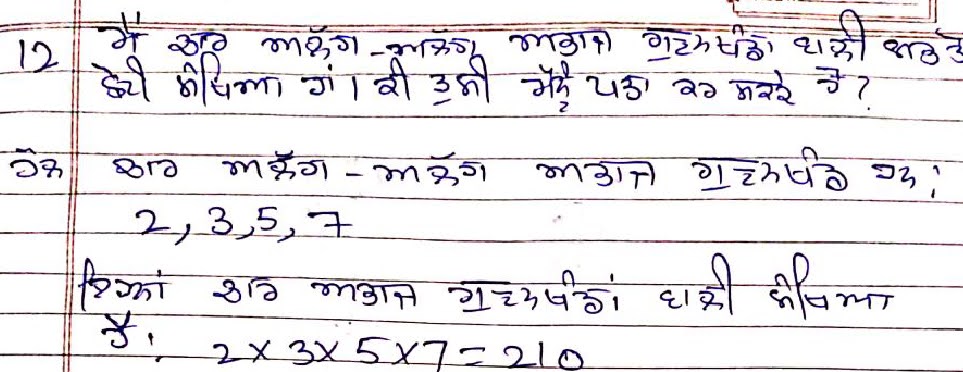 12 ਮੈਂ ਚਾਰ ਅਲੱਗ-ਅਲੱਗ ਅਭਾਜ ਗੁਣਨਖੰਡਾਂ ਵਾਲੀ ਸਭ ਤੋਂ
ਛੋਟੀ ਸੰਖਿਆ ਹਾਂ। ਕੀ ਤੁਸੀ ਮੈਨੂੰ ਪਤਾ ਕਰ ਸਕਦੇ ਹੋ?
ਹੱਲ ਚਾਰ ਅਲੱਗ-ਅਲੱਗ ਅਭਾਜ ਗੁਣਨਖੰਡ ਹਨ:
2, 3, 5, 7
ਇਹਨਾਂ ਚਾਰ ਅਭਾਜ ਗੁਣਨਖੰਡਾਂ ਵਾਲੀ ਸੰਖਿਆ
ਹੈ:
2×3×5×7=210